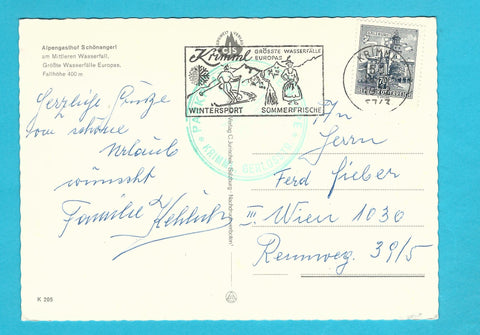 Alpengasthof Schönangerl
am Mittleren Wasserfall,
Größte Wasserfälle Europas,
Fallhöhe 400 m
Krimml
GRÖSSTE WASSERFÄLLE
EUROPAS
WINTERSPORT SOMMERFRISCHE
KRIMML
5743
KRIMML GERLOS
Herzliche Grüße
vom schönen
Urlaub
wünscht
Familie
An
Herrn
Ferd Sieber
III Wien 1030
Rennweg 39/5
K 205